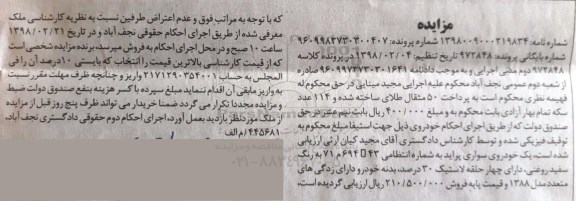 مزایده
شماره نامه: ۱۳۹۸۰۰۹۰۰۰۳۱۹۸۳۴ شماره پرونده: ۹۶۰۹۹۸۳۷۳۰۳۰۰۴۰۷
شماره بایگانی پرونده: ۹۷۲۸۴۸ تاریخ تنظیم: ۱۳۹۸/۰۲/۰۴ در پرونده کلاسه
۹۷۲۸۴۸ دوم مدنی اجرایی و به موجب دادنامه ۹۶۰۹۹۷۳۷۳۰۳۰۱۶۴۱ صادره
از شعبه دوم عمومی نجف آباد محکوم علیه اجرایی مجید مینایی در حق محکوم له
فهیمه نظری محکوم است به پرداخت ۵۰ مثقال طلای ساخته شده و ۱۱۴ عدد
سکه تمام بهار آزادی بابت محکوم به و مبلغ ۴۰۰/۰۰۰ ریال بابت نیم عشر در حق
صندوق دولت که از طریق اجرای احکام خودروی ذیل جهت استیفا مبلغ محکوم به
توقیف فیزیکی شده و توسط کارشناس دادگستری آقای مجید کیان ارثی ارزیابی
شده است، یک خودروی سواری پراید به شماره انتظامی ۴۳ ۶۹۴ م ۷۱ به رنگ
سفید روغنی، دارای چهار حلقه لاستیک ۳۰ درصد، بدنه خودرو دارای زدگی های
متعدد مدل ۱۳۸۸ و قیمت پایه فروش ۲۱۰/۵۰۰/۰۰۰ ریال ارزیابی گردیده است،
که با توجه به مراتب فوق و عدم اعتراض طرفین نسبت به نظریه کارشناسی ملک
معرفی شده از طریق اجرای احکام حقوقی نجف آباد و در تاریخ ۱۳۹۸/۰۲/۲۱
ساعت ۱۰ صبح و در محل اجرای احکام به فروش میرسد، برنده مزایده شخصی است
که از قیمت کارشناسی بالاترین قیمت را انتخاب که بایستی ۱۰ درصد آن را فی
المجلس به حساب ۲۱۷۱۲۹۰۳۵۴۰۰۱ واریز و چنانچه ظرف مهلت مقرر نسبت
به واریز مابقی آن اقدام ننماید مبلغ سپرده با کسر هزینه بنفع صندوق دولت ضبط
و مزایده مجددا تکرار می گردد ضمنا خریدار می تواند ظرف پنج روز قبل از مزایده
از ملک مورد نظر بازدید بعمل آورد، اجرای احکام دوم حقوقی دادگستری نجف آباد.
۴۴۵۶۸۱/م الف